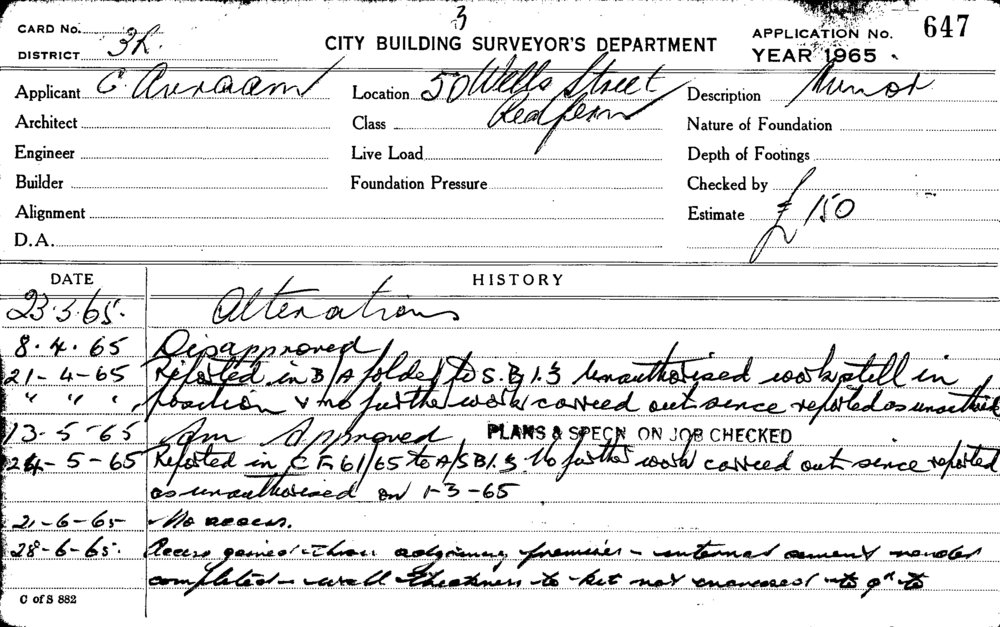 3
CARD No.
DISTRICT 3R.
CITY BUILDING SURVEYOR'S DEPARTMENT
APPLICATION No. 647
YEAR 1965
Applicant C. Avraam
Location 50 Wells Street
Redfern
Description Minor
Architect
Class
Nature of Foundation
Engineer
Live Load
Depth of Footings
Builder
Foundation Pressure
Checked by
Alignment
Estimate £150
D.A.
DATE HISTORY
23.3.65. Alterations
8.4.65 Disapproved
21-4-65 Reported in B/A folder to S.B.I.3 Unauthorised work still in
" " " position & no further work carried out since reported as unauthorised
13-5-65 Am Approved PLANS & SPECN ON JOB CHECKED
24-5-65 Reported in CF 61/65 to A/SBI.3. No further work carried out since reported
as unauthorised on 1-3-65
21-6-65 No access.
28-6-65. Access gained thru adjoining premises - internal cement render
completed - wall thickness to kit not increased to 9" to
C of S 882